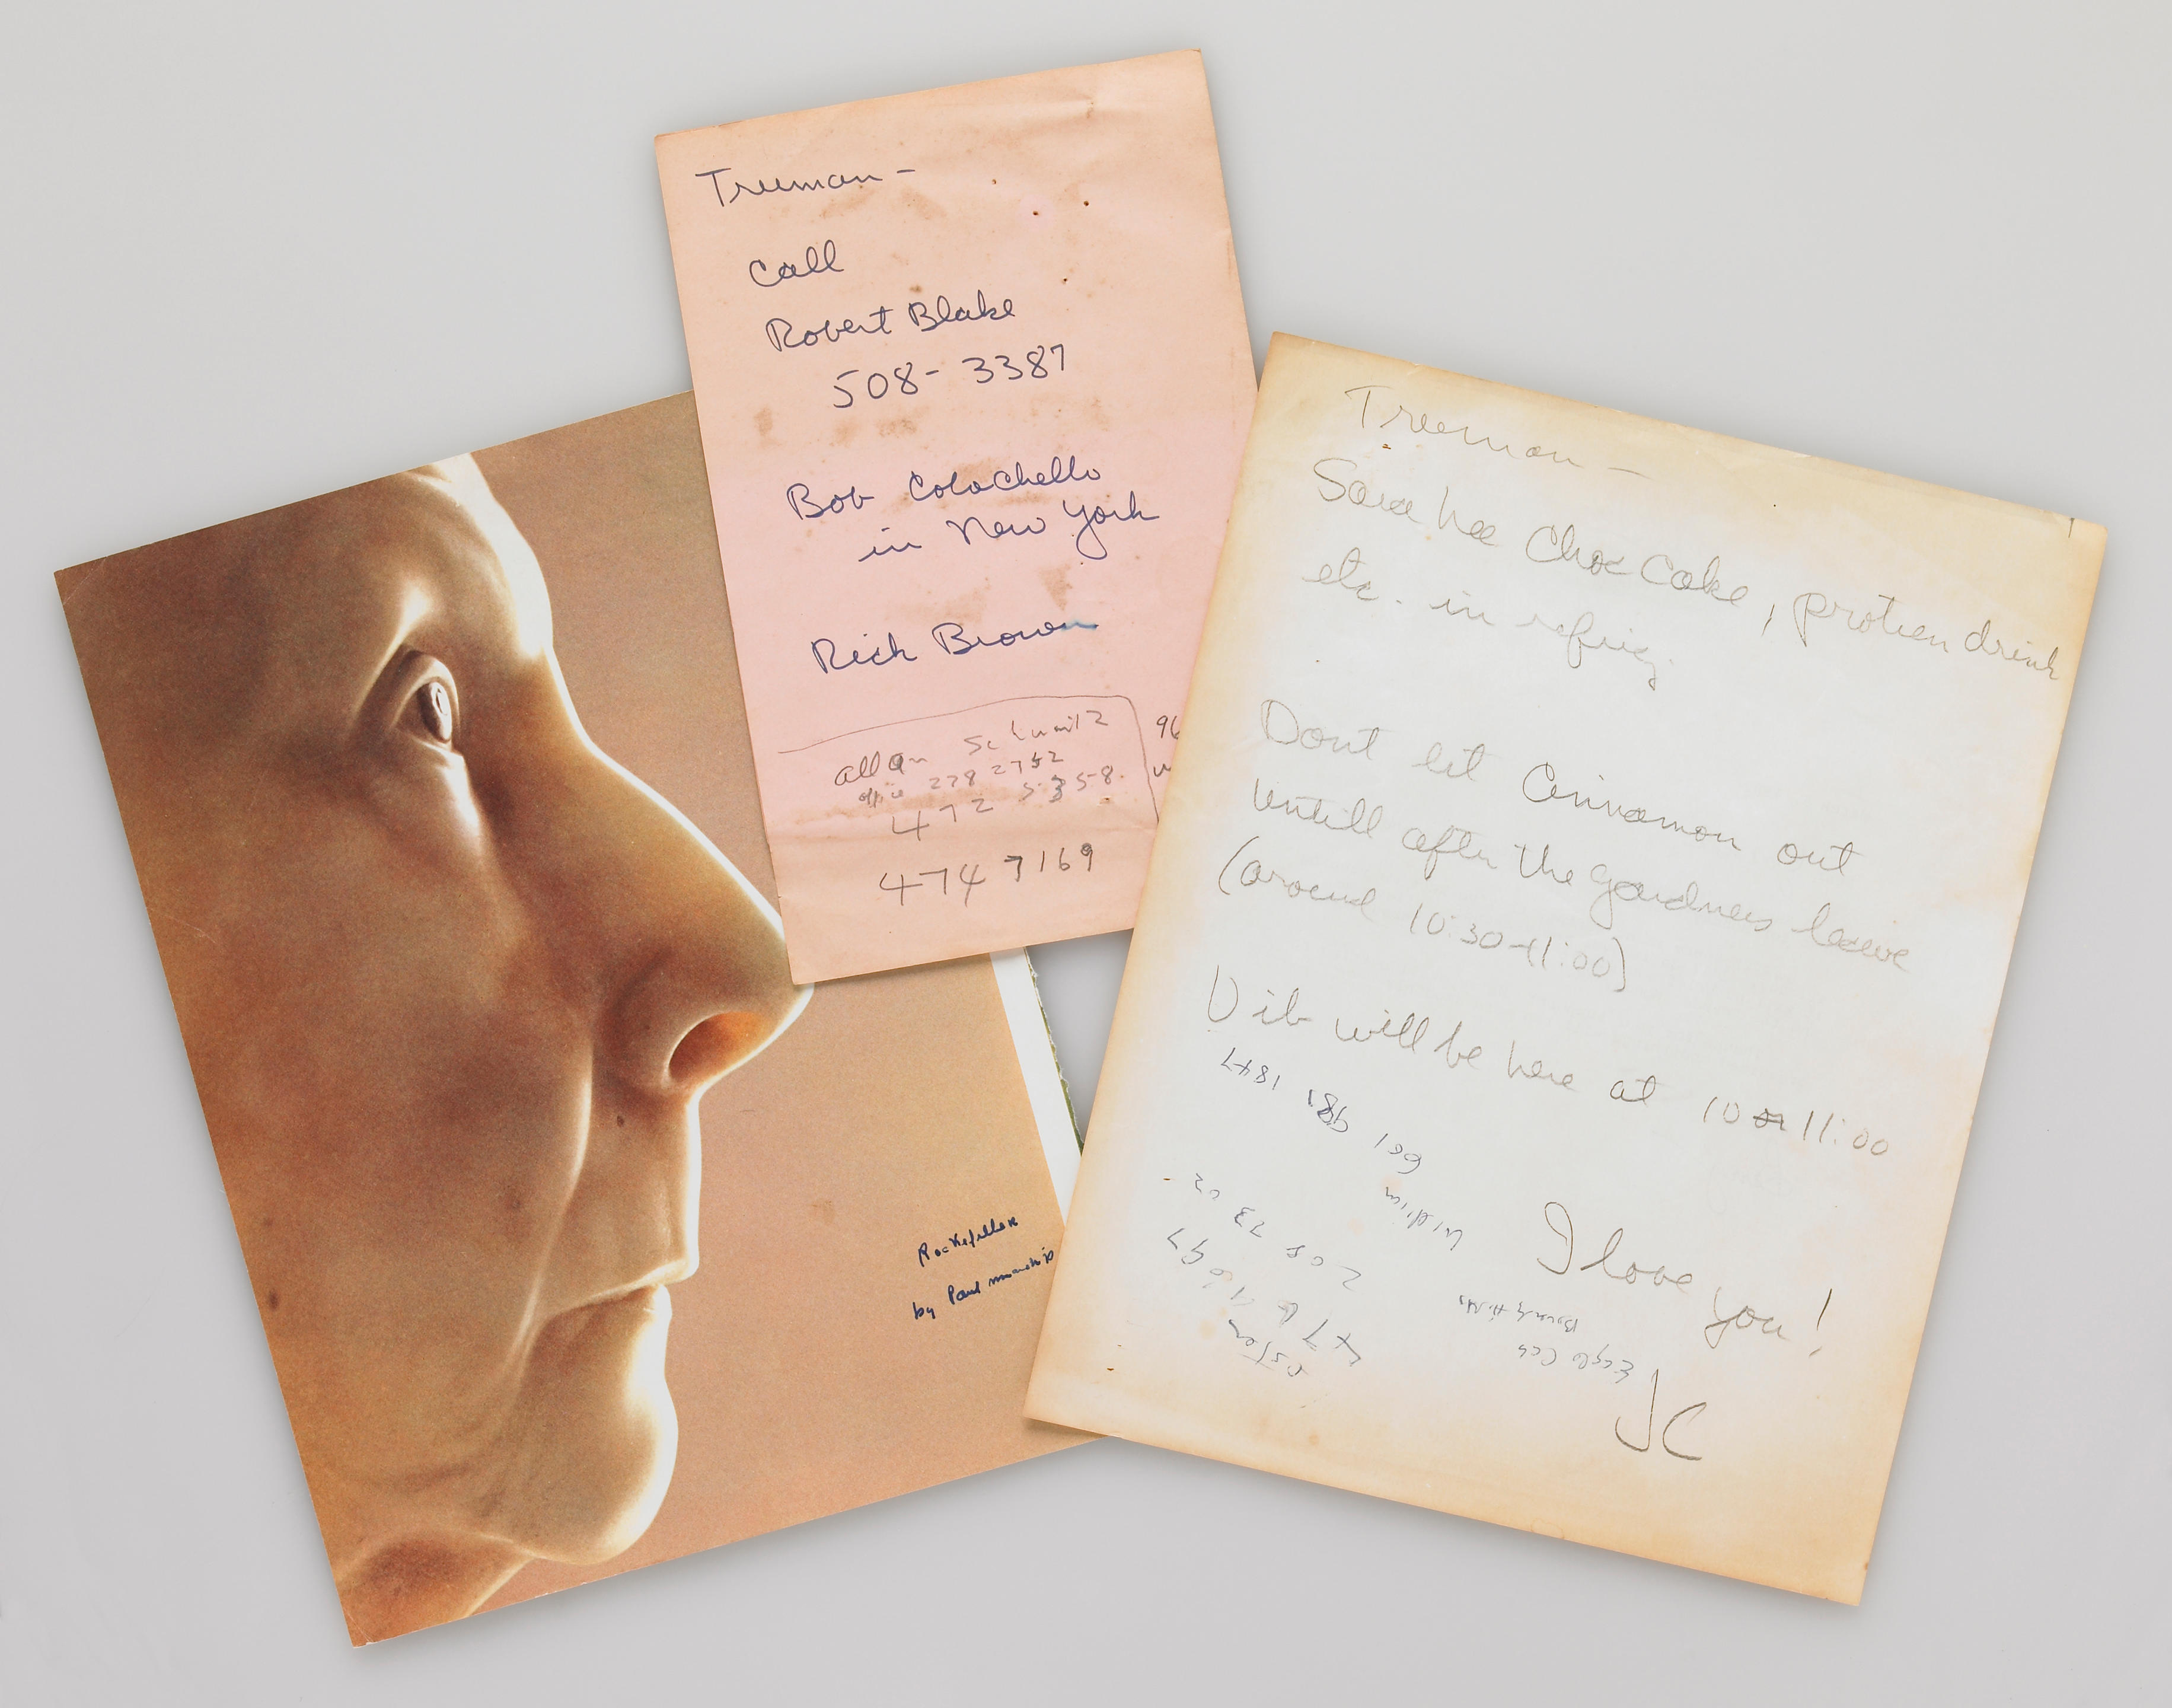 Truman -
Call
Robert Blake
508-3387
Bob Colachello
in New York
Rick Brown
allan Schwartz
office 278 2752
472 5358
474 7169
96
Truman -
Sara Lee Choc Cake, protien drink
etc. in refrig.
Dont let Cinnamon out
untill after the gardners leave
(around 10:30-11:00)
Vib will be here at 10 or 11:00
I love you!
JC
981 1847
Beverly Hills
Rockefeller
by Paul